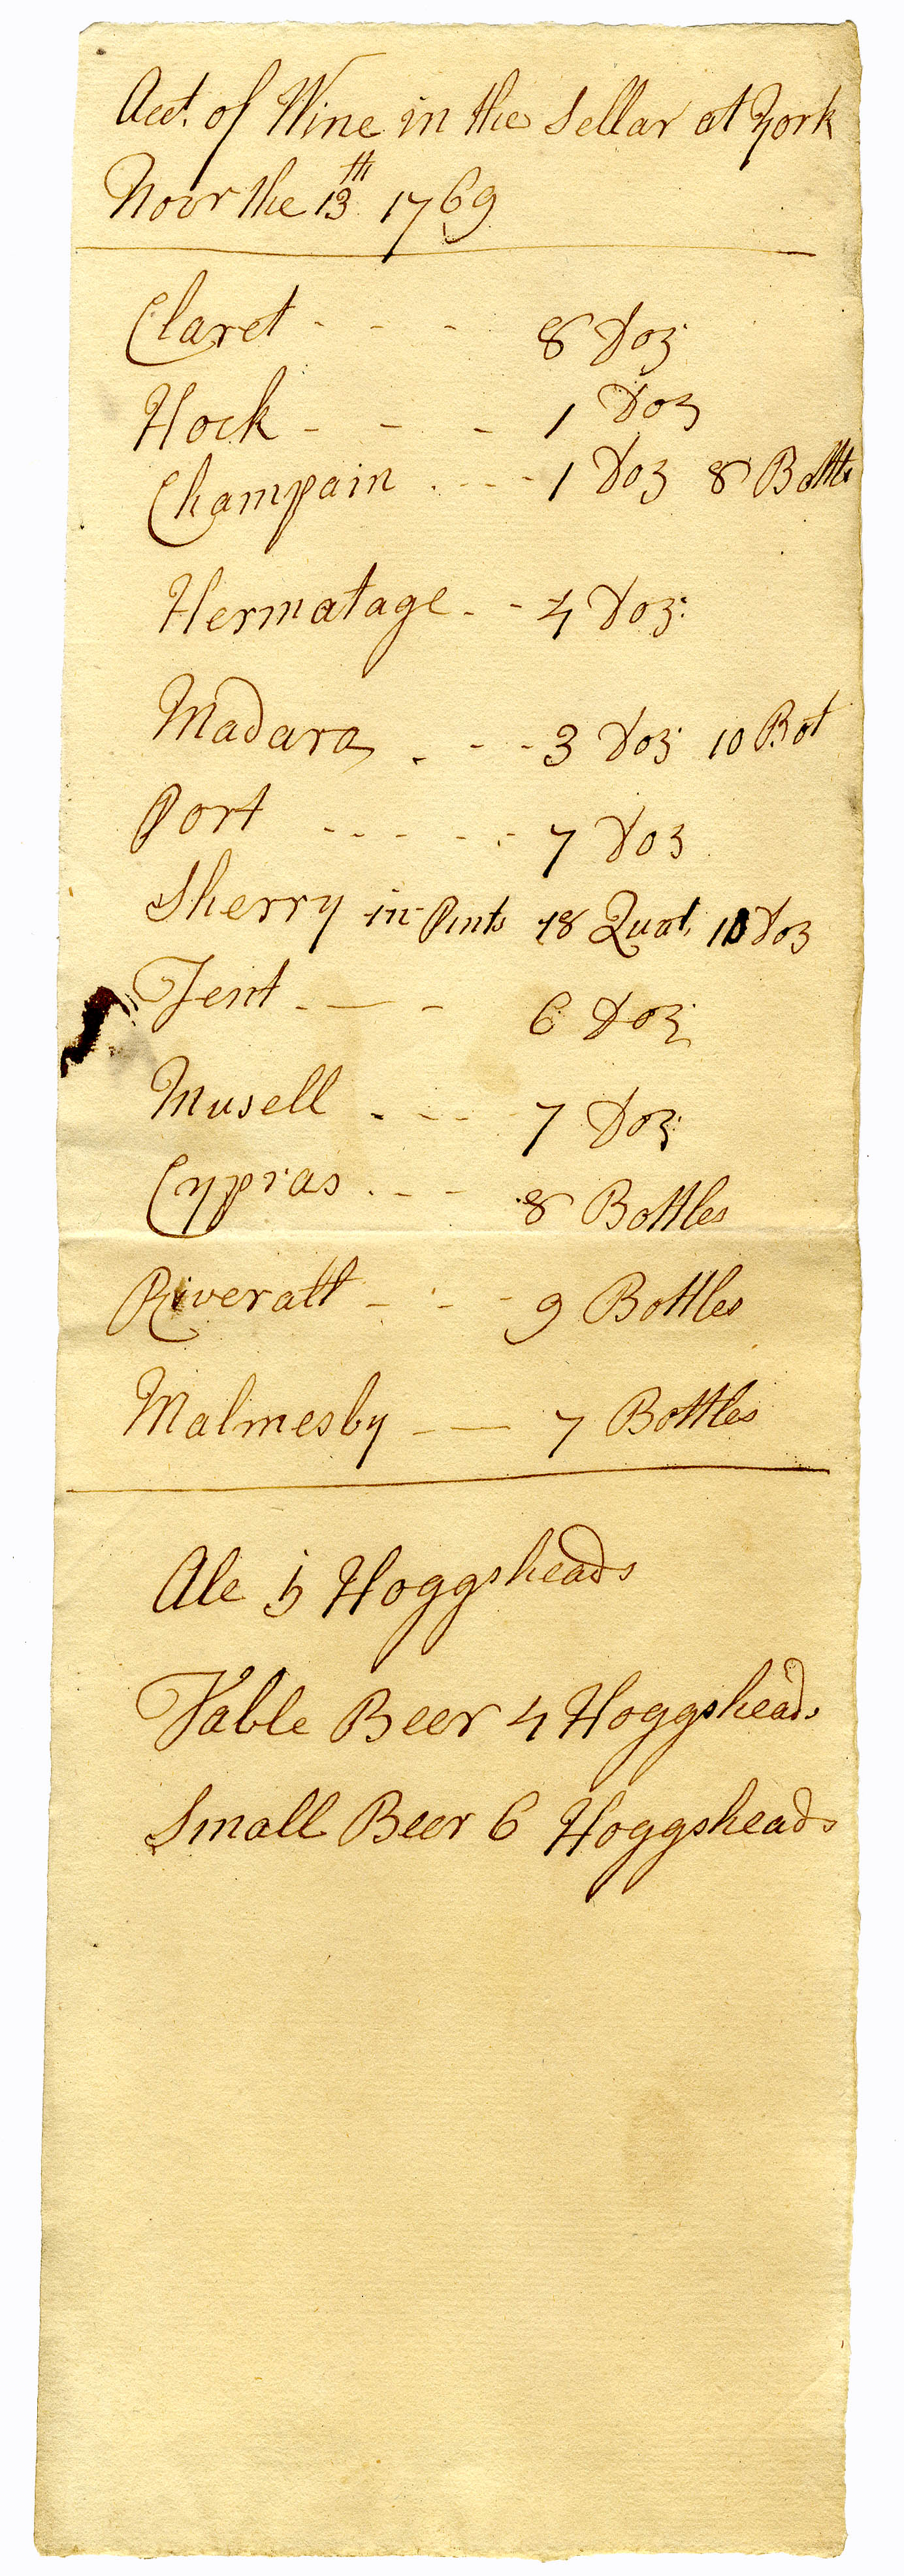 Acct. of Wine in the Sellar at York
Novr the 13th 1769
Claret - - - 8 Doz
Hock - - - 1 Doz
Champain - - - 1 Doz 8 Bottls
Hermatage - - 4 Doz:
Madara - - - 3 Doz 10 Bot
Port - - - - - 7 Doz
Sherry in Pints 18 Quat. Doz
Tent - - - 6 Doz
Musell - - - - 7 Doz
Cypras - - - 8 Bottles
Riveratt - - - - 9 Bottles
Malmesby - - 7 Bottles
Ale 5 Hoggsheads
Table Beer 4 Hoggsheads
Small Beer 6 Hoggsheads